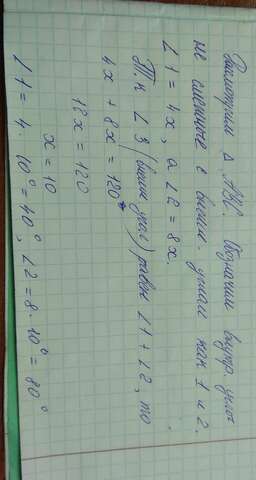 Рассмотрим Δ ABC. Обозначим внутр. углы
не смежные с внешн. углом как 1 и 2.
∠1 = 4x, а ∠2 = 8x.
Т.к ∠3 (внешн угол) равен ∠1 + ∠2, то
4x + 8x = 120°
12x = 120
x = 10
∠1 = 4 · 10° = 40°, ∠2 = 8 · 10° = 80°